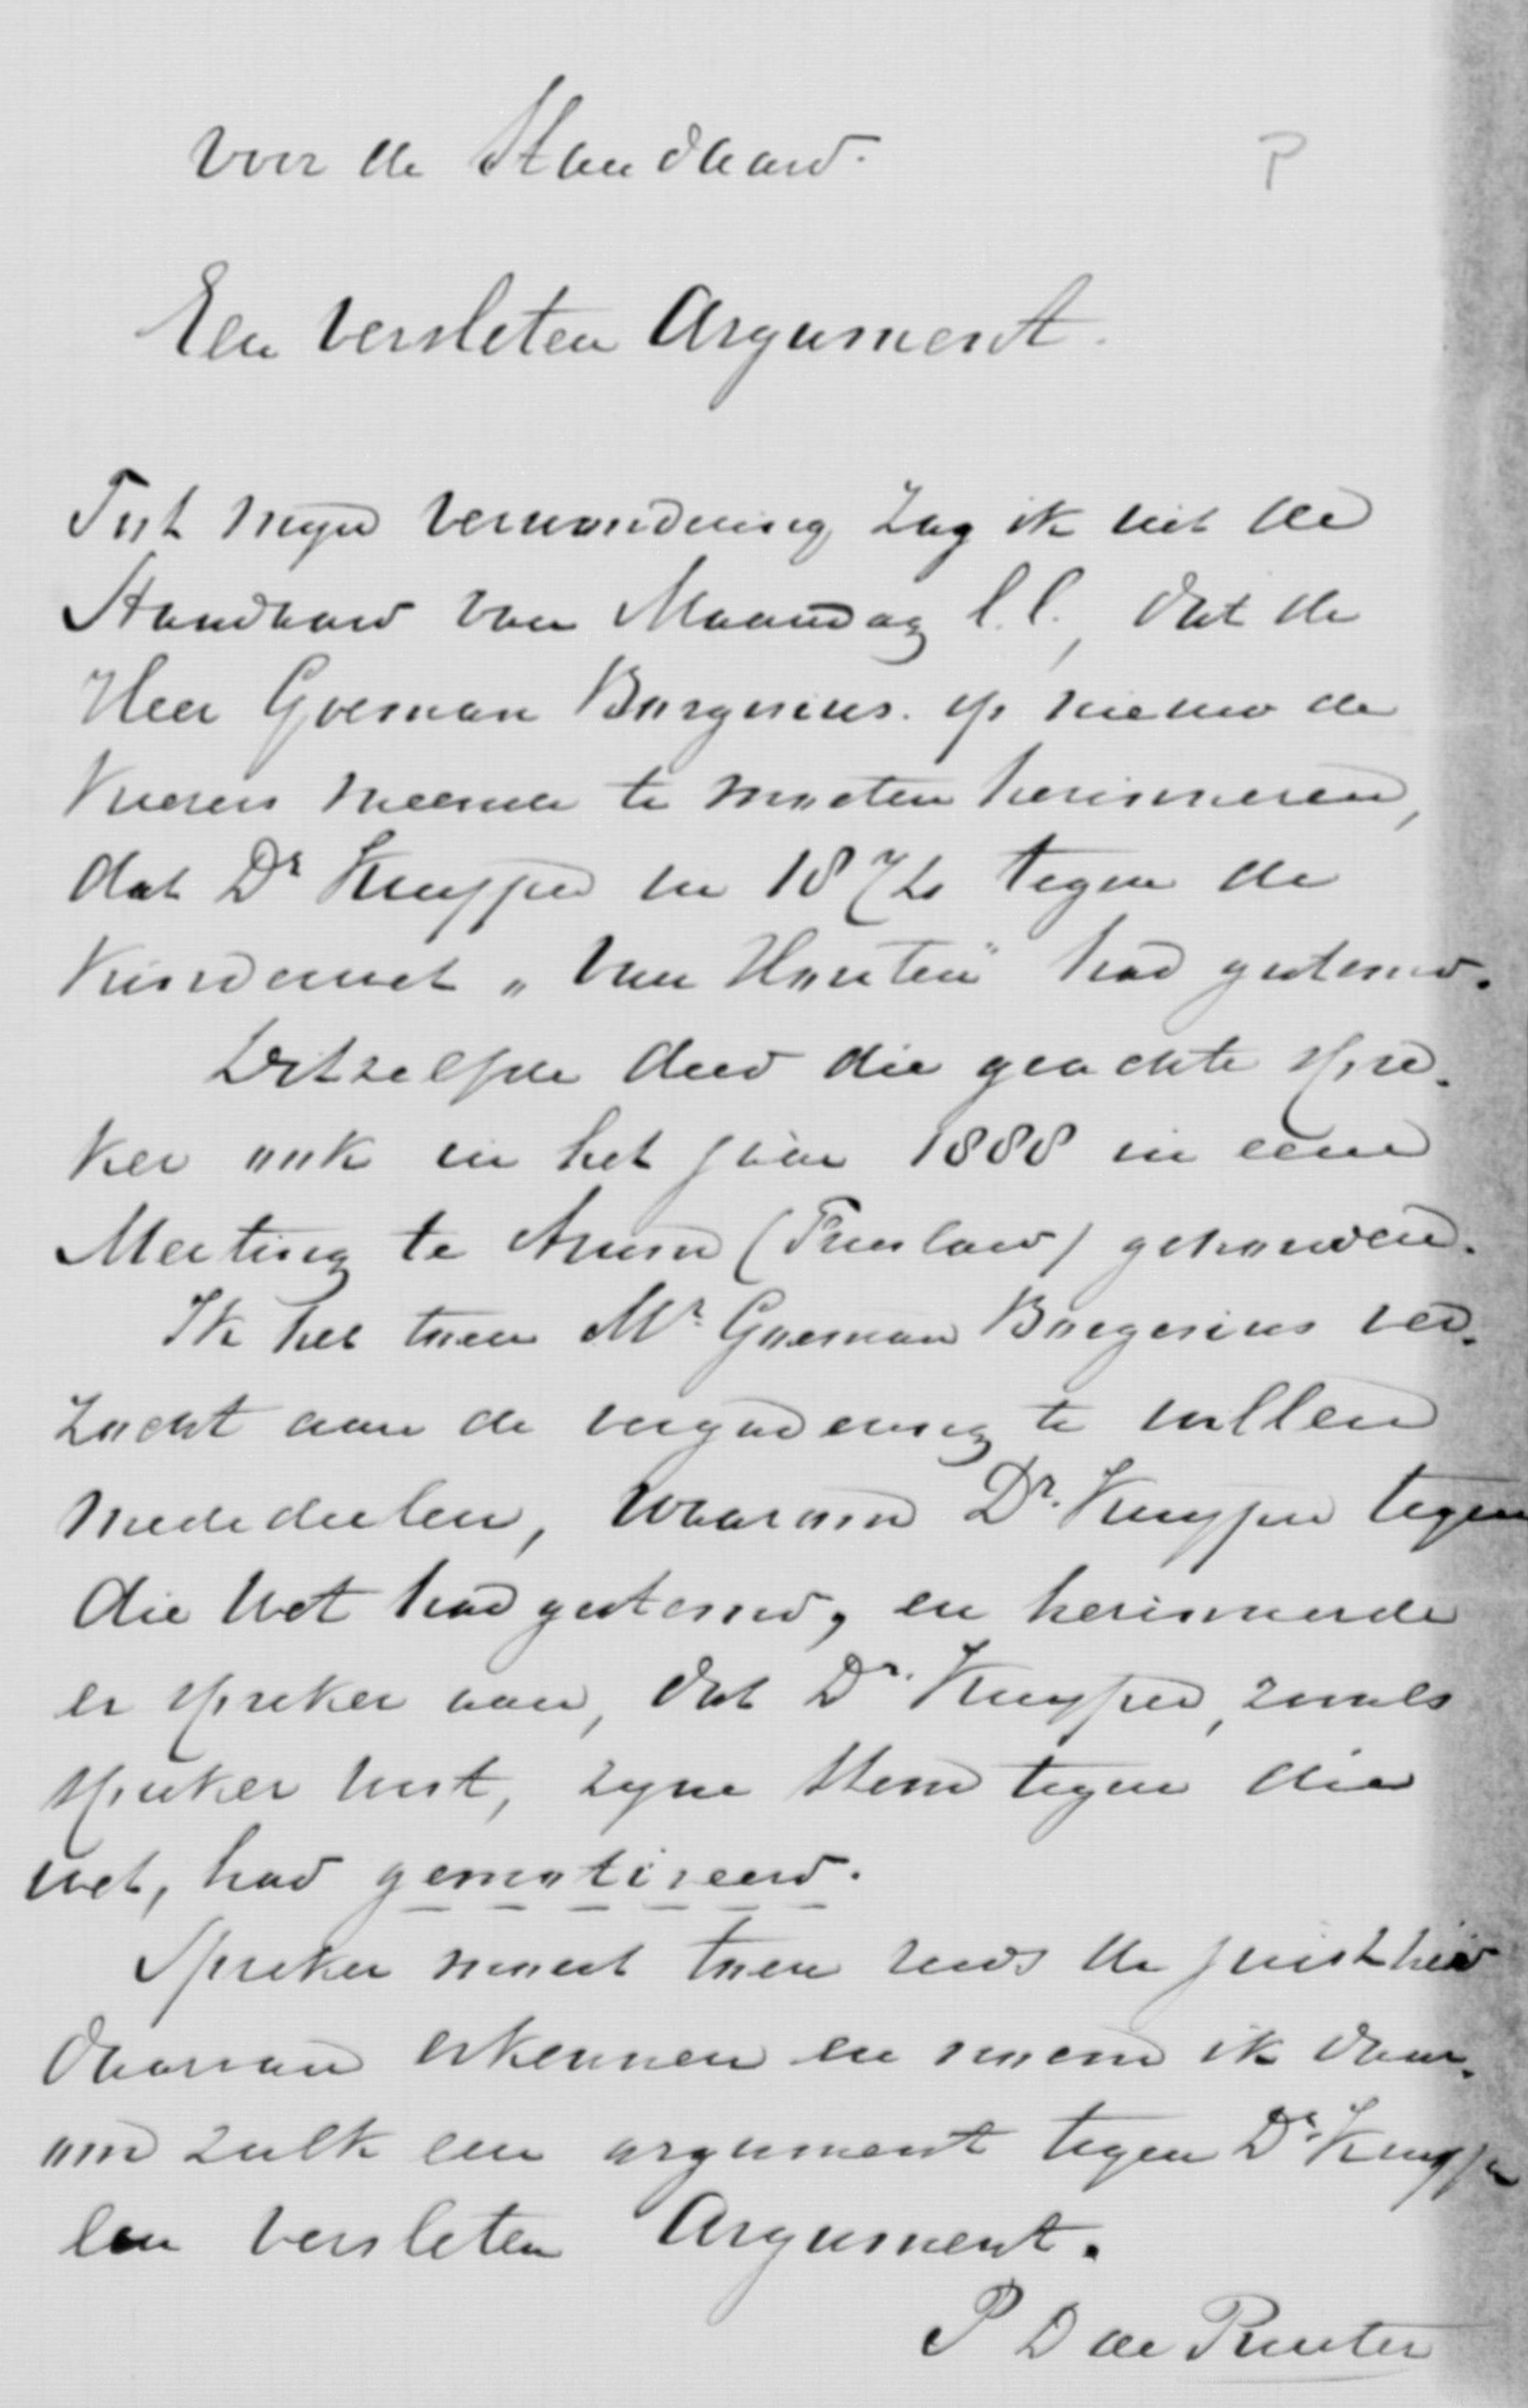 voor de Standaard.
P
Een versleten Argument.
Tot mijn verwondering zag ik uit de
Standaard van Maandag l.l., dat de
Heer Goeman Borgesius op nieuw de
kiezers meende te moeten herinneren,
dat Dr Kuyper in 1874 tegen de
Kinderwet „van Houten" had gestemd.
Ditzelfde deed die geachte spre-
ker ook in het jaar 1888 in eene
Meeting te Arum (Friesland) gehouden.
Ik heb toen Mr. Goeman Borgesius ver-
zocht aan de vergadering te willen
mededeelen, waarom Dr. Kuyper tegen
die Wet had gestemd, en herinnerde
er spreker aan, dat Dr. Kuyper, zooals
spreker wist, zyne stem tegen die
wet, had gemotiveerd.
Spreker moest toen reeds de juistheid
daarvan erkennen en noem ik daar-
om zulk een argument tegen Dr. Kuyper
een versleten Argument.
P D de Ruiter